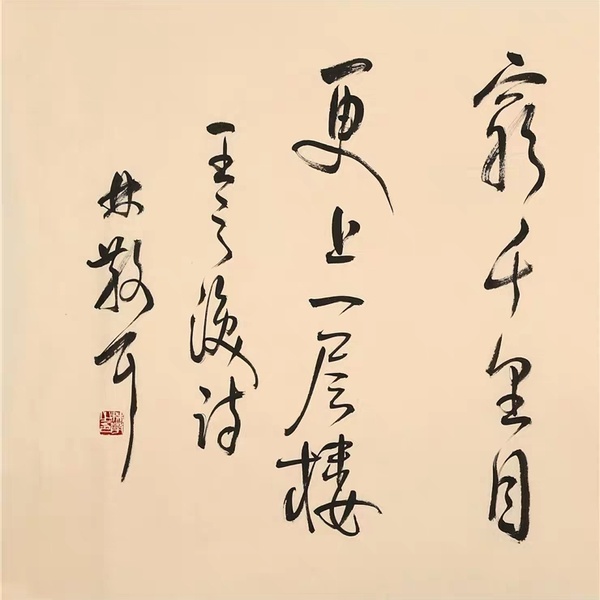 窮千里目
更上一层楼
王之涣诗
林散耳